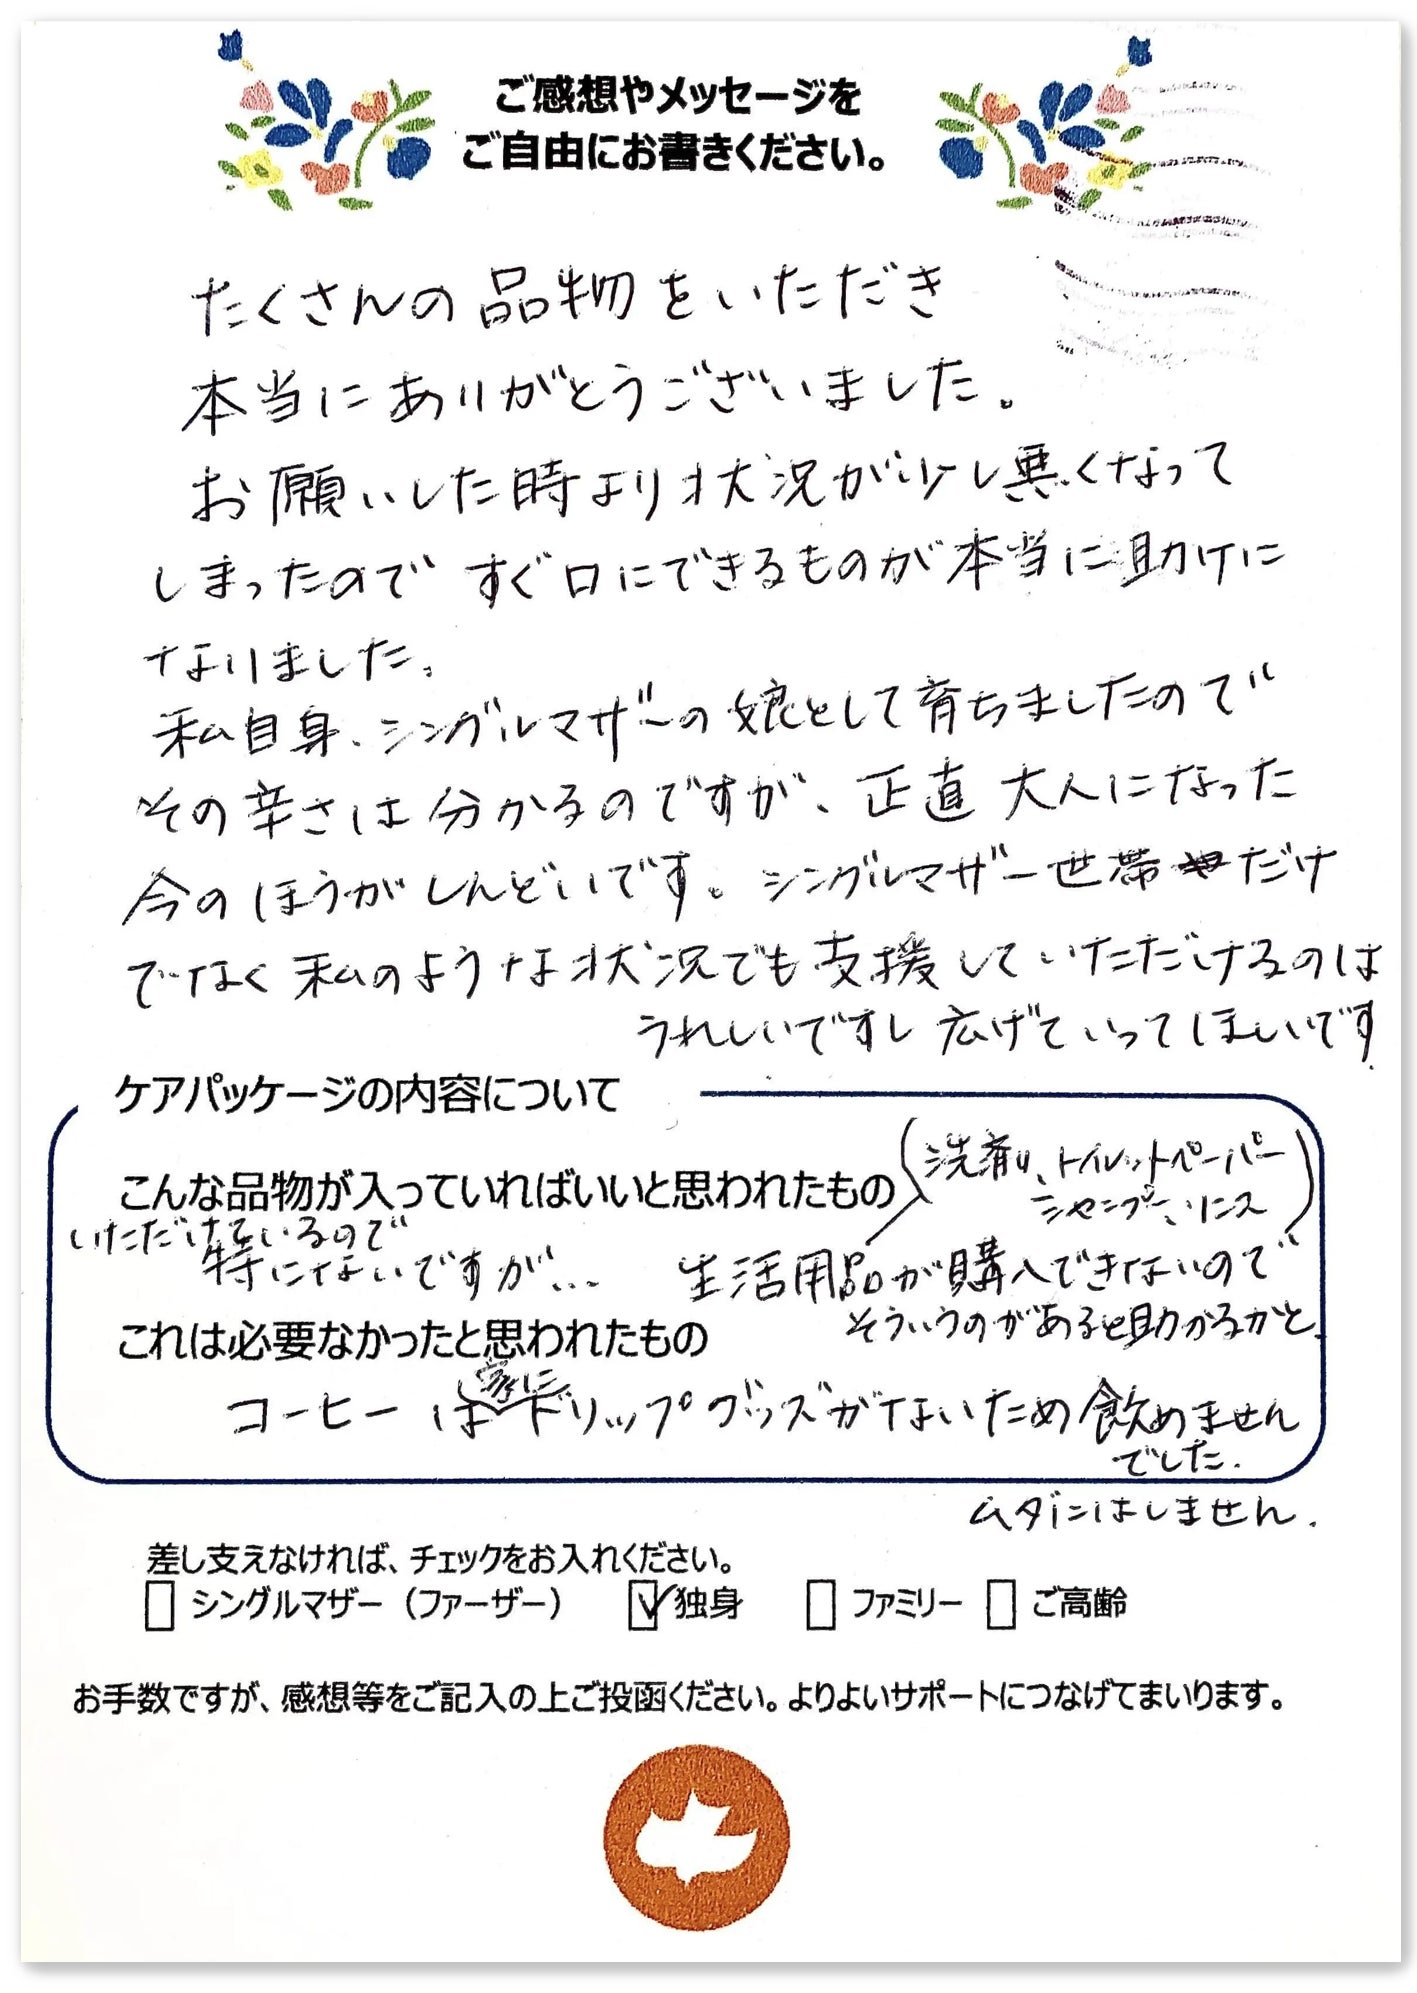 ご感想やメッセージを
ご自由にお書きください。
たくさんの品物をいただき
本当にありがとうございました。
お願いした時より状況が少し悪くなって
しまったので すぐ口にできるものが本当に助けに
なりました。
私自身、シングルマザーの娘として育ちましたので
その辛さは分かるのですが、正直 大人になった
今のほうがしんどいです。シングルマザー世帯だけ
でなく私のような状況でも支援していただけるのは
うれしいですし 広げていってほしいです
ケアパッケージの内容について
こんな品物が入っていればいいと思われたもの
(洗剤、トイレットペーパー
シャンプー、リンス)
いただけているので
特にないですが… 生活用品が購入できないので
そういうのがあると助かるかと、
これは必要なかったと思われたもの
コーヒーは家にドリップグッズがないため飲めません
でした.
ムダにはしません.
差し支えなければ、チェックをお入れください。
シングルマザー（ファーザー） ✓独身 ファミリー ご高齢
お手数ですが、感想等をご記入の上ご投函ください。よりよいサポートにつなげてまいります。